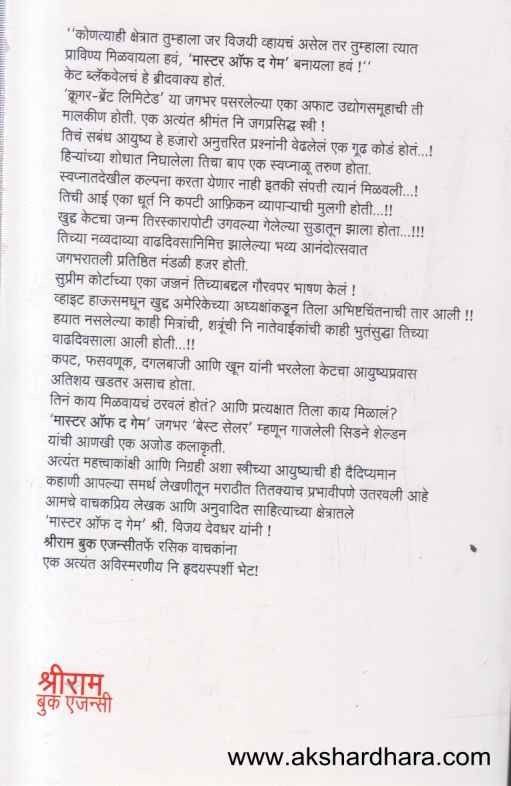 "कोणत्याही क्षेत्रात तुम्हाला जर विजयी व्हायचं असेल तर तुम्हाला त्यात
प्राविण्य मिळवायला हवं, 'मास्टर ऑफ द गेम' बनायला हवं !"
केट ब्लॅकवेलचं हे ब्रीदवाक्य होतं.
'क्रूगर-ब्रेंट लिमिटेड' या जगभर पसरलेल्या एका अफाट उद्योगसमूहाची ती
मालकीण होती. एक अत्यंत श्रीमंत नि जगप्रसिद्ध स्त्री !
तिचं सबंध आयुष्य हे हजारो अनुत्तरित प्रश्नांनी वेढलेलं एक गूढ कोडं होतं...!
हिऱ्यांच्या शोधात निघालेला तिचा बाप एक स्वप्नाळू तरुण होता.
स्वप्नातदेखील कल्पना करता येणार नाही इतकी संपत्ती त्यानं मिळवली...!
तिची आई एका धूर्त नि कपटी आफ्रिकन व्यापाऱ्याची मुलगी होती...!!
खुद्द केटचा जन्म तिरस्कारापोटी उगवल्या गेलेल्या सुडातून झाला होता...!!!
तिच्या नव्वदाव्या वाढदिवसानिमित्त झालेल्या भव्य आनंदोत्सवात
जगभरातली प्रतिष्ठित मंडळी हजर होती.
सुप्रीम कोर्टाच्या एका जज्जनं तिच्याबद्दल गौरवपर भाषण केलं !
व्हाइट हाऊसमधून खुद्द अमेरिकेच्या अध्यक्षांकडून तिला अभिष्टचिंतनाची तार आली !!
हयात नसलेल्या काही मित्रांची, शत्रूंची नि नातेवाईकांची काही भुतंसुद्धा तिच्या
वाढदिवसाला आली होती...!!
कपट, फसवणूक, दगलबाजी आणि खून यांनी भरलेला केटचा आयुष्यप्रवास
अतिशय खडतर असाच होता.
तिनं काय मिळवायचं ठरवलं होतं? आणि प्रत्यक्षात तिला काय मिळालं?
'मास्टर ऑफ द गेम' जगभर 'बेस्ट सेलर' म्हणून गाजलेली सिडने शेल्डन
यांची आणखी एक अजोड कलाकृती.
अत्यंत महत्त्वाकांक्षी आणि निग्रही अशा स्त्रीच्या आयुष्याची ही दैदिप्यमान
कहाणी आपल्या समर्थ लेखणीतून मराठीत तितक्याच प्रभावीपणे उतरवली आहे
आमचे वाचकप्रिय लेखक आणि अनुवादित साहित्याच्या क्षेत्रातले
'मास्टर ऑफ द गेम' श्री. विजय देवधर यांनी !
श्रीराम बुक एजन्सीतर्फे रसिक वाचकांना
एक अत्यंत अविस्मरणीय नि हृदयस्पर्शी भेट!
श्रीराम
बुक एजन्सी
www.akshardhara.com